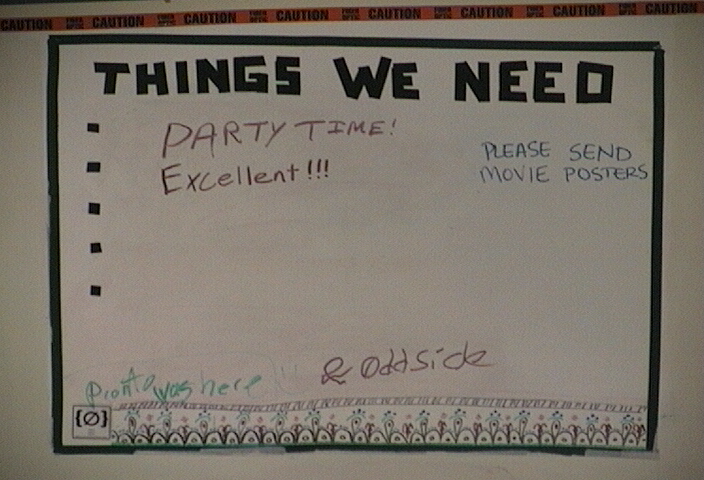 CAUTION CAUTION CAUTION CAUTION CAUTION CAUTION CAUTION CAUTION
THINGS WE NEED
PARTY TIME!
Excellent!!!
PLEASE SEND
MOVIE POSTERS
& Oddside
Pronto was here
{Ø}